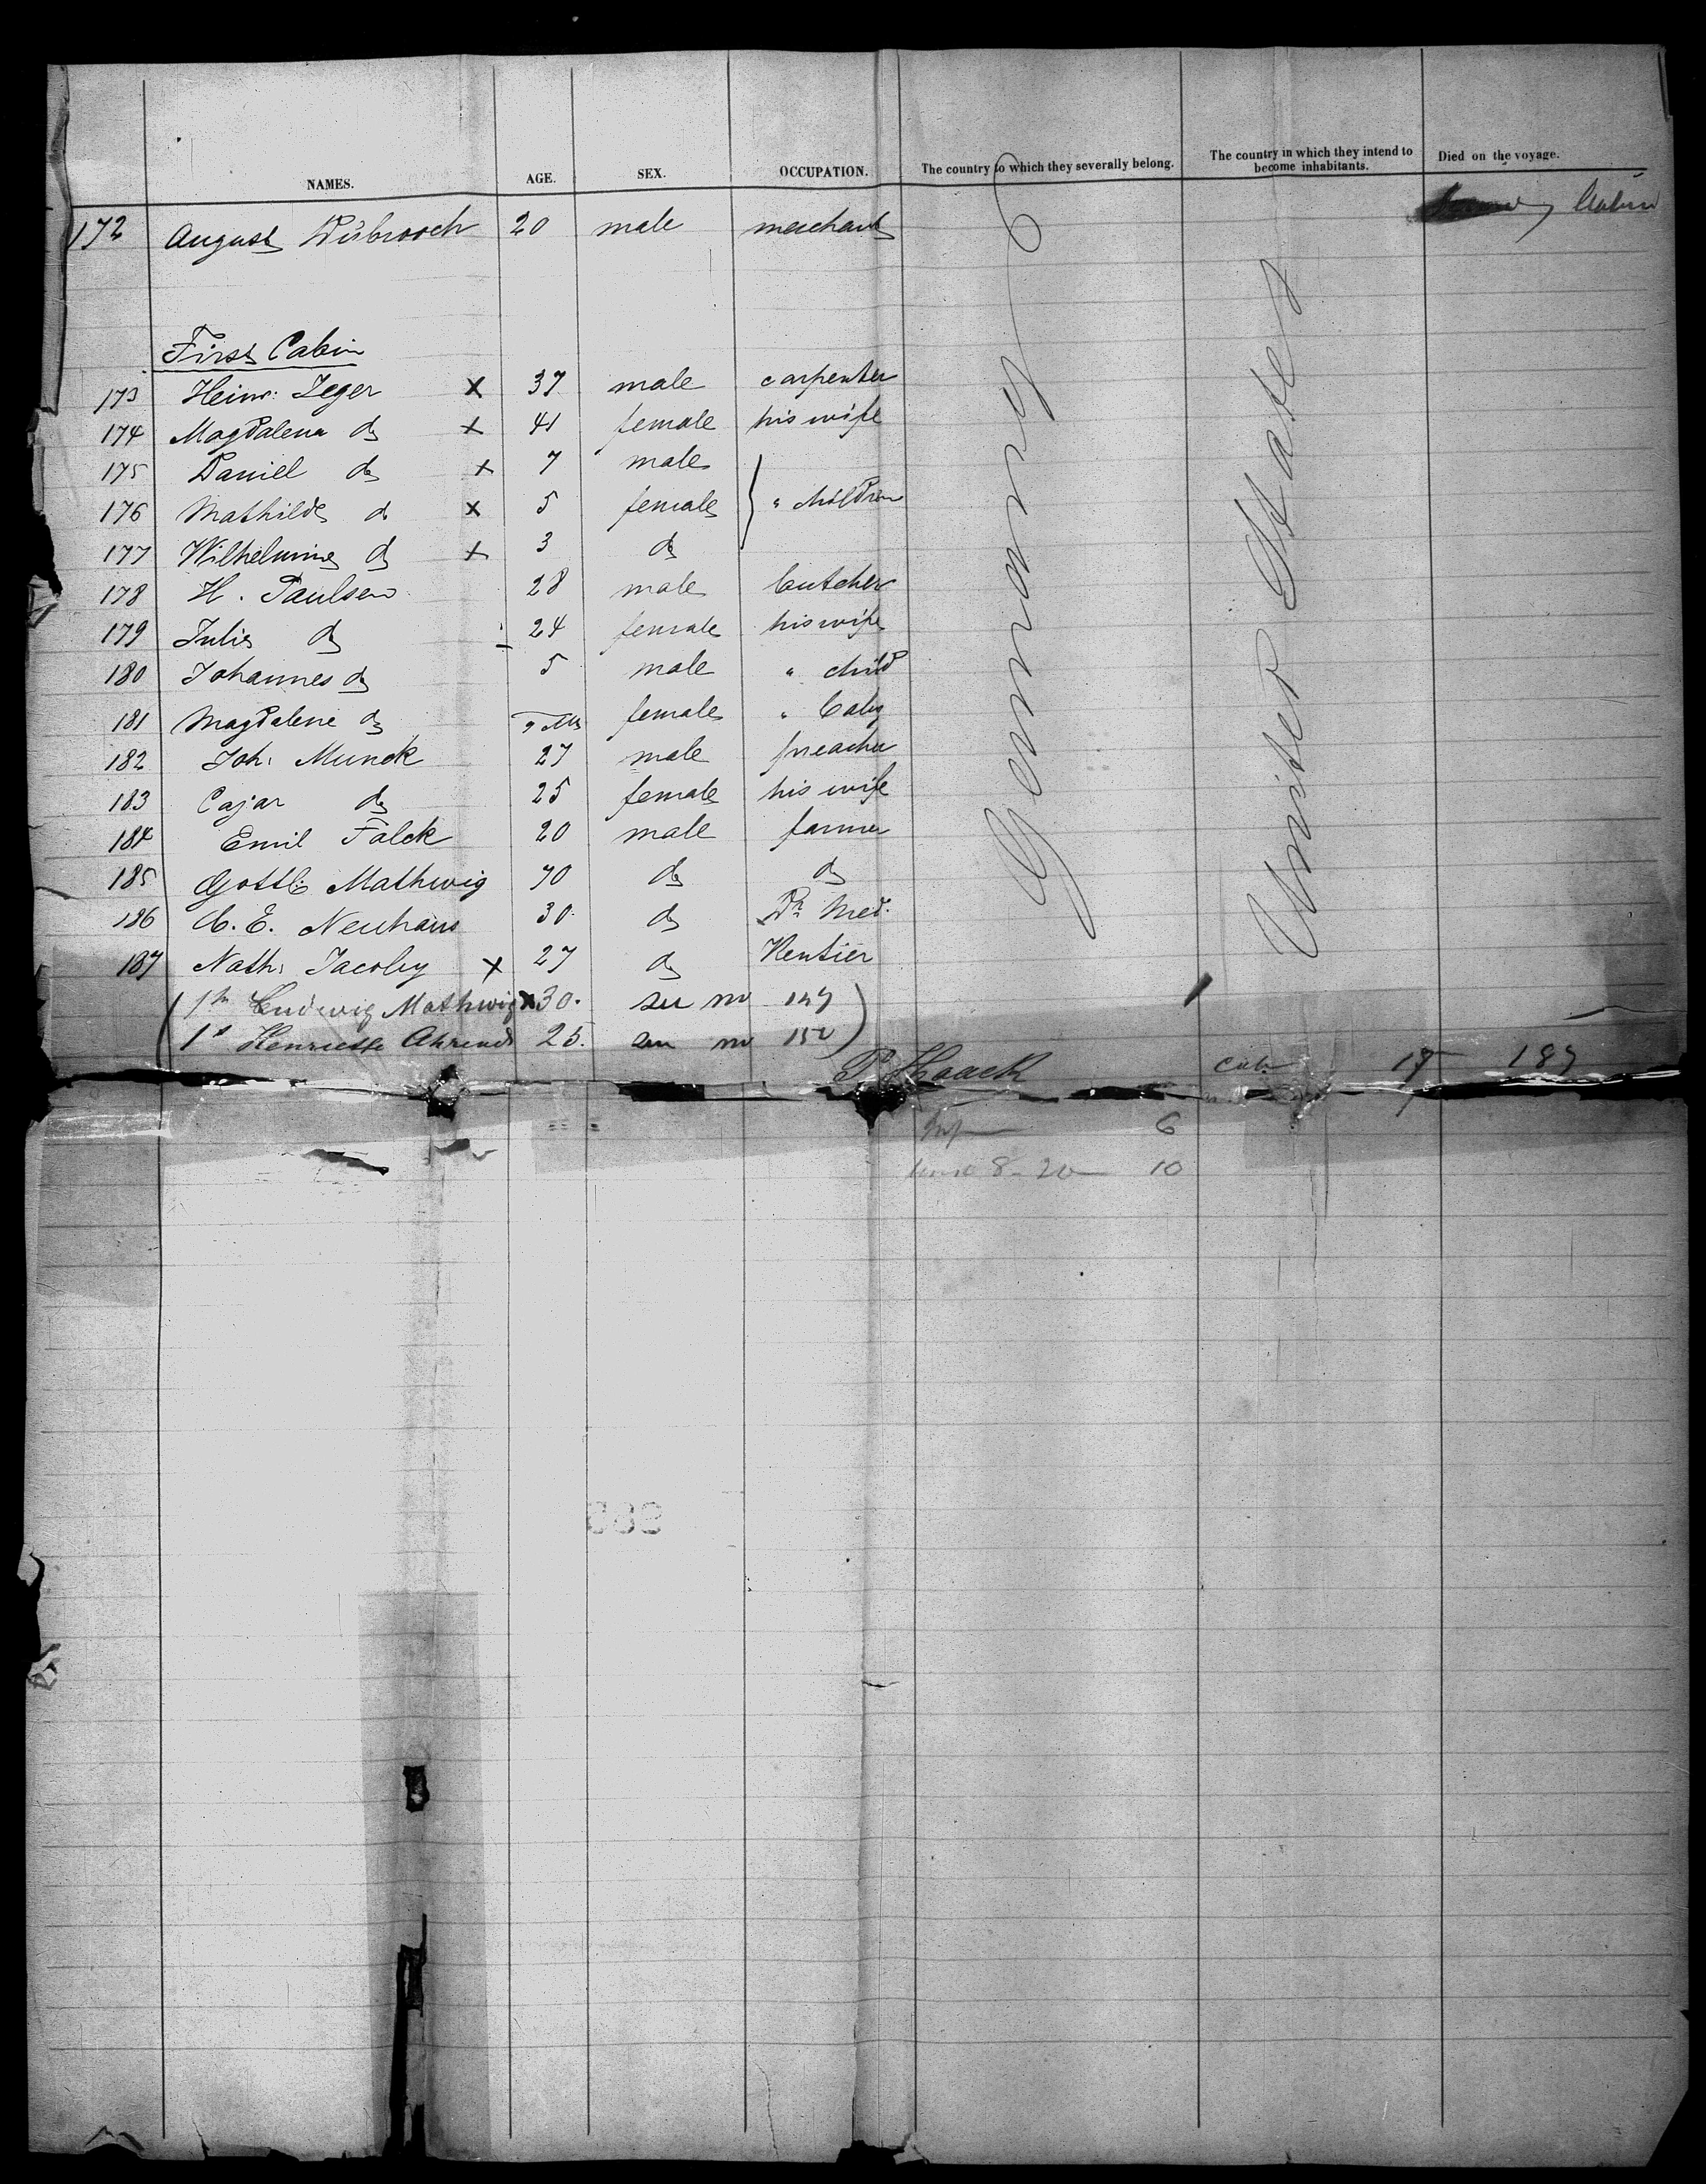 NAMES. AGE. SEX. OCCUPATION. The country to which they severally belong. The country in which they intend to become inhabitants. Died on the voyage.
172 August Dübrooch 20 male merchant
Germany
United States
First Cabin
173 Heinr: Zeger X 37 male carpenter
174 Magdalena do X 41 female his wife
175 Daniel do X 7 male
176 Mathilde do X 5 female " children
177 Wilhelmine do X 3 do
178 H. Paulsen 28 male butcher
179 Julie do 24 female his wife
180 Johannes do 5 male " child
181 Magdalene do 9 Ms female " baby
182 Joh. Munck 27 male preacher
183 Cajar do 25 female his wife
184 Emil Falck 20 male farmer
185 Gottl. Mathwig 70 do do
186 C. E. Neuhaus 30 do Dr. Med.
187 Nath. Jacoby X 27 do Rentier
( Ludwig Mathwig X 30. see no 149 )
( Henriette Ahrends 25. see no 150 )
P Haack Cab. 17 187
6
8-20 10